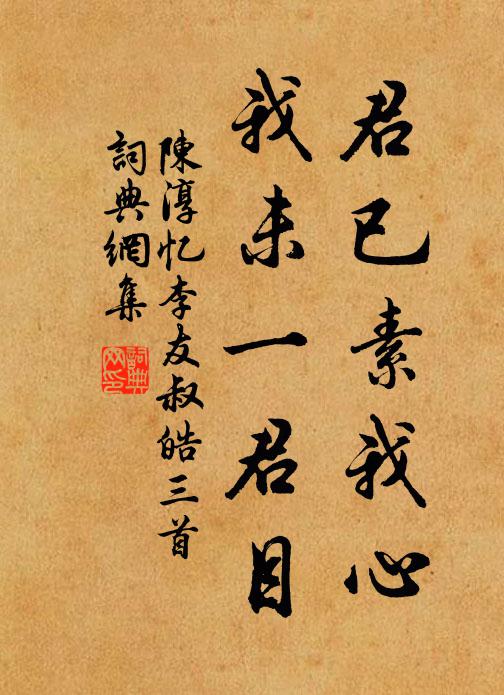 君已素我心
我未一君目
陳淳忆李友叔皓三首
詞典網集
詞典網印